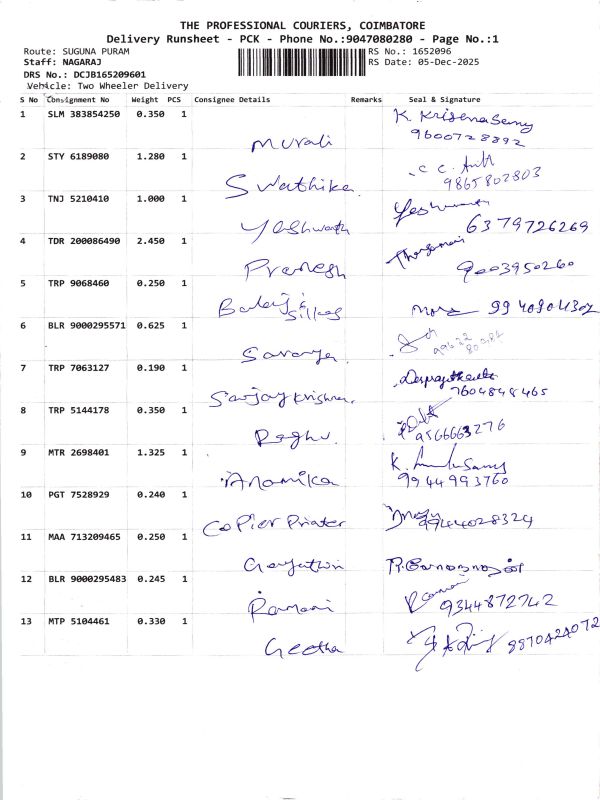 THE PROFESSIONAL COURIERS, COIMBATORE
Delivery Runsheet - PCK - Phone No.:9047080280 - Page No.:1
Route: SUGUNA PURAM
RS No.: 1652096
Staff: NAGARAJ
RS Date: 05-Dec-2025
DRS No.: DCJB165209601
Vehicle: Two Wheeler Delivery
S No Consignment No Weight PCS Consignee Details Remarks Seal & Signature
1 SLM 383854250 0.350 1 Murali K. Krishna Samy
9600728892
2 STY 6189080 1.280 1 Swathika
9865802803
3 TNJ 5210410 1.000 1 Yeshwanth
6379726269
4 TDR 200086490 2.450 1 Pranesh
9003950260
5 TRP 9068460 0.250 1 Balaji & Silks
6 BLR 9000295571 0.625 1 Saranya
7 TRP 7063127 0.190 1 Sanjay Krishna
7604848465
8 TRP 5144178 0.350 1 Raghu
9566663276
9 MTR 2698401 1.325 1 Anamika
9944993760
10 PGT 7528929 0.240 1 Copier Printer
9944028324
11 MAA 713209465 0.250 1 Gayathri
12 BLR 9000295483 0.245 1 Ramani
9344872742
13 MTP 5104461 0.330 1 Geetha
8870424072